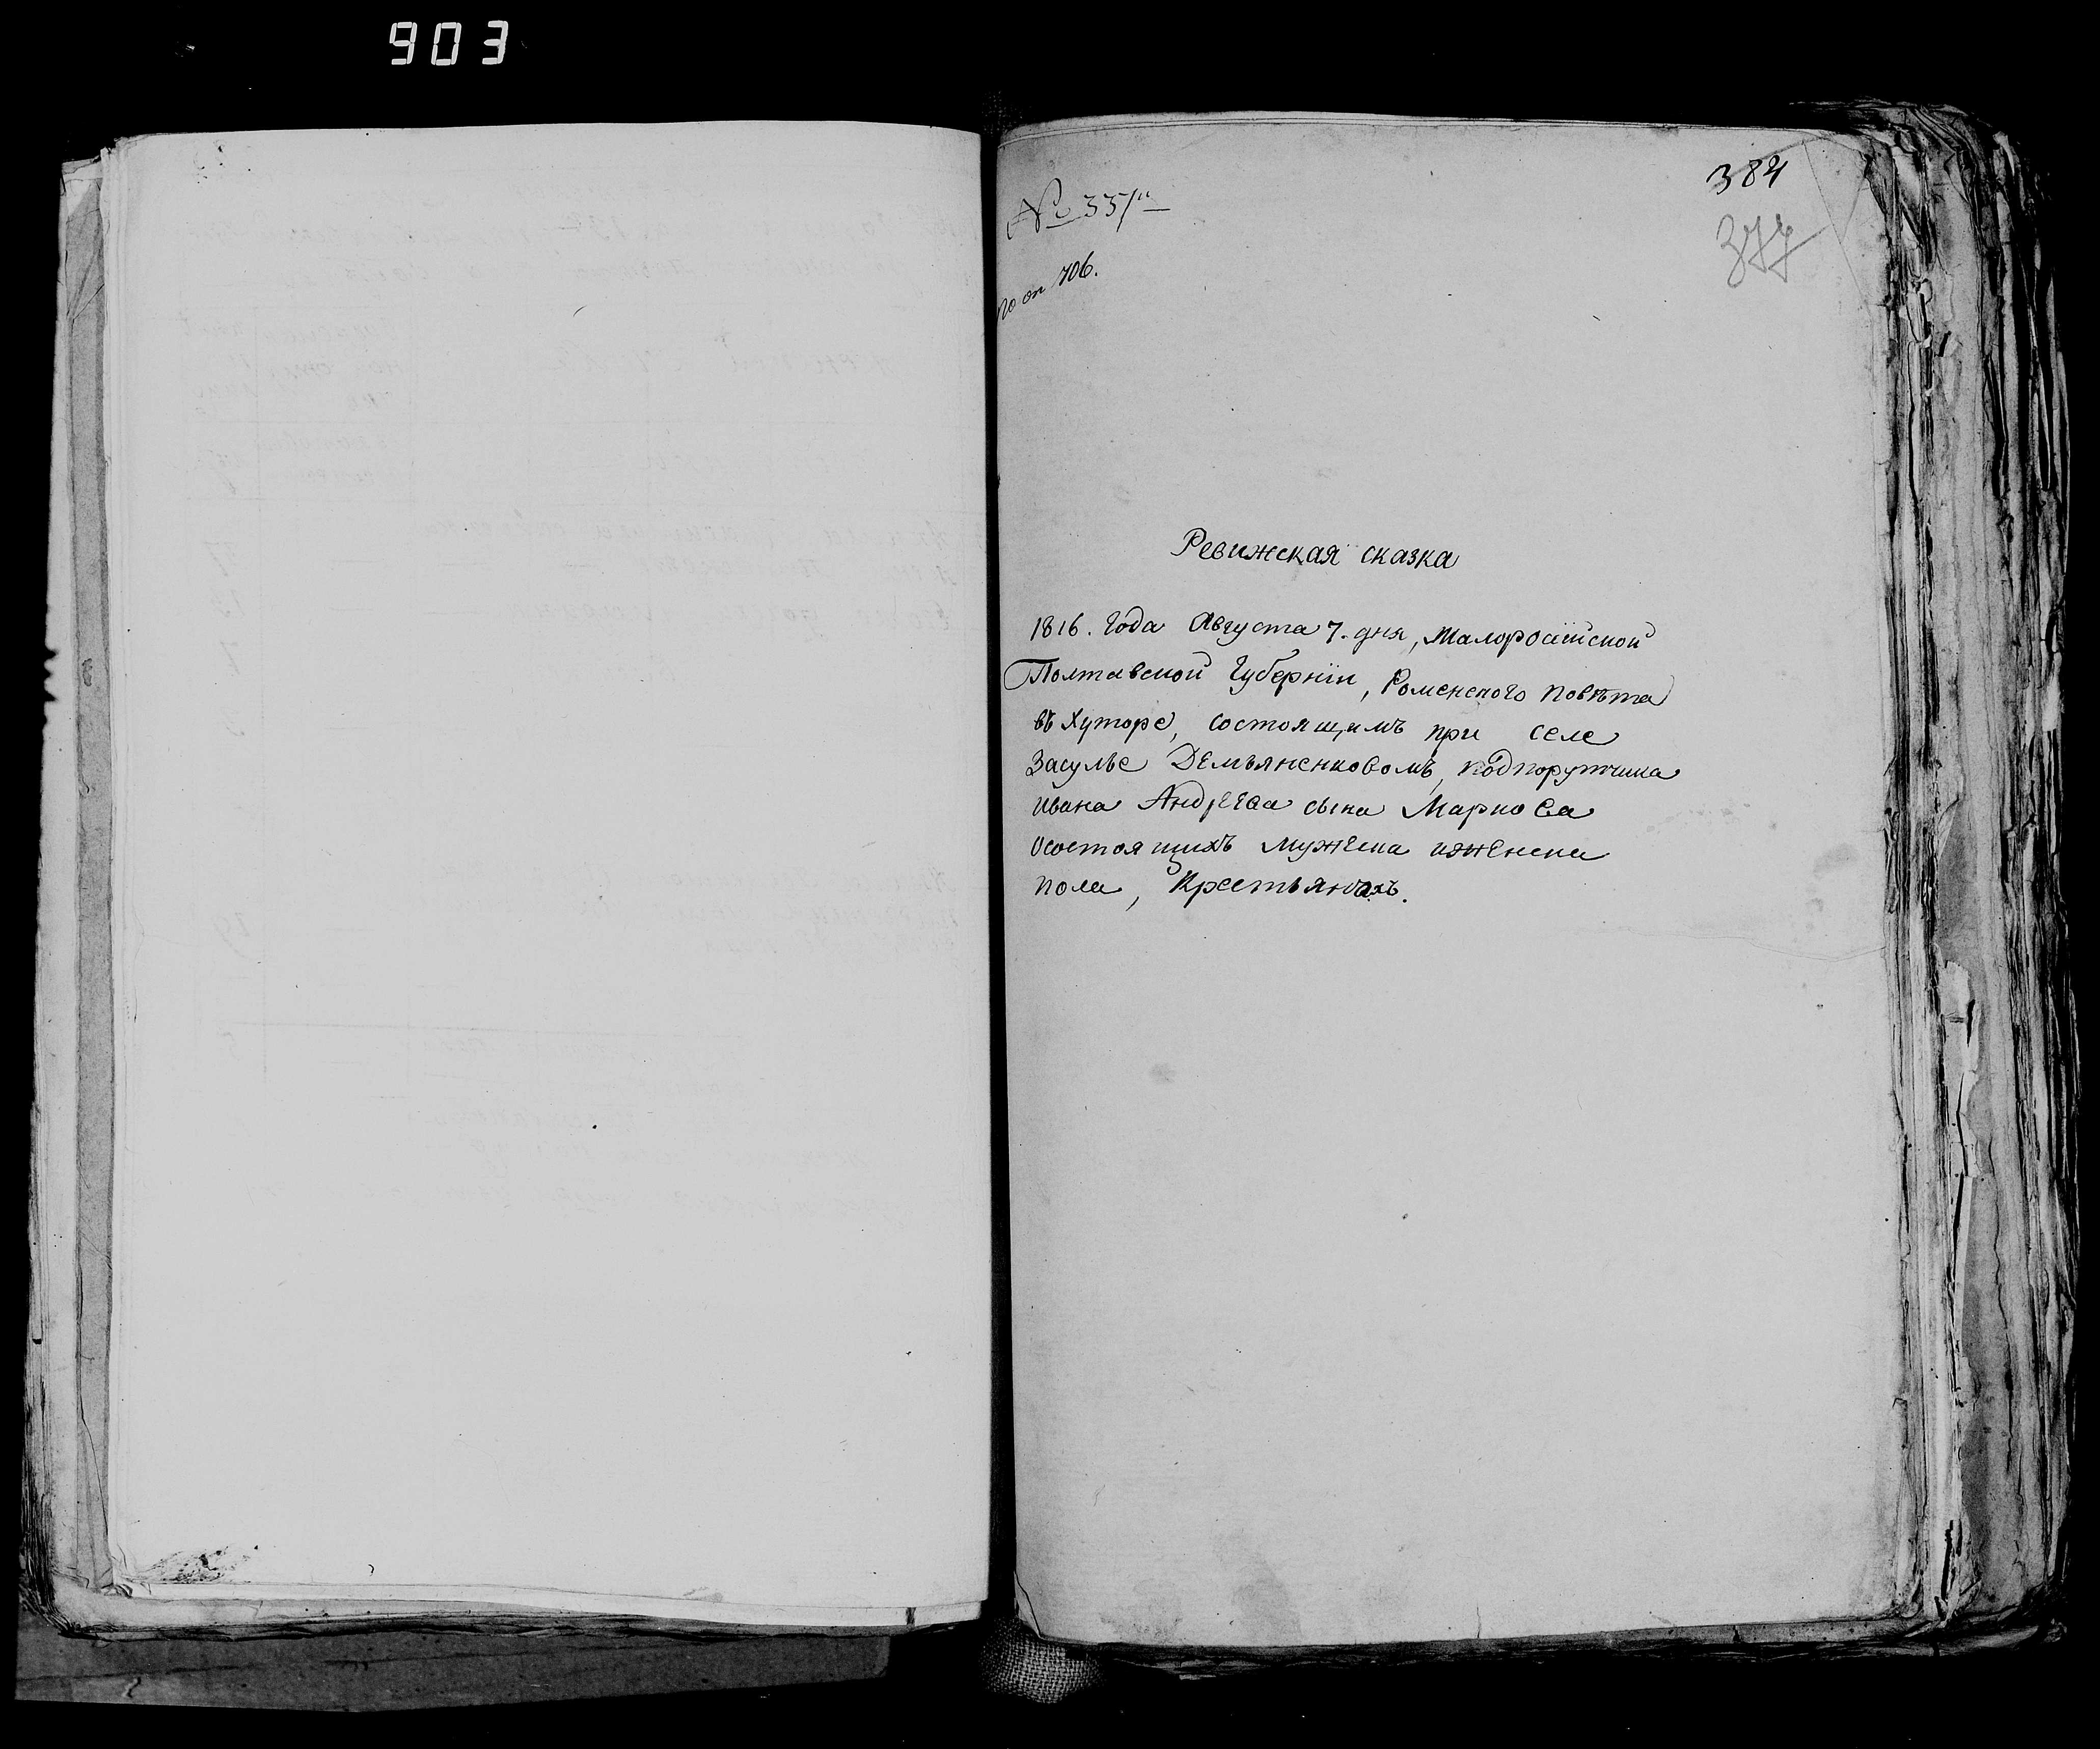 903
384
377
№ 351
по оп 706.
Ревижская сказка
1816. Года Августа 7. дня, Малоросїйской
Полтавской Губернїи, Роменского повѣта
въ Хуторе, состоящимъ при селе
Засулье Демьяненковомъ, подпорутчика
Ивана Андреева сына Маркова
осостоящихъ мужеска иженска
пола, Крестьянахъ.